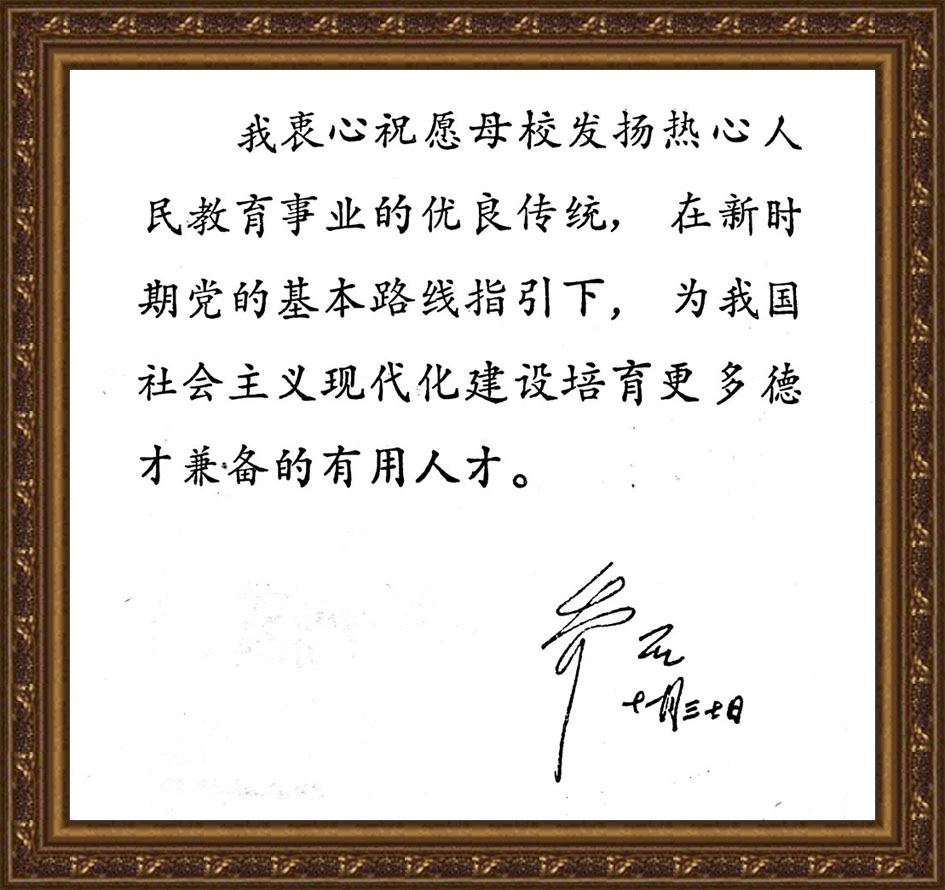 我衷心祝愿母校发扬热心人
民教育事业的优良传统，在新时
期党的基本路线指引下，为我国
社会主义现代化建设培育更多德
才兼备的有用人才。